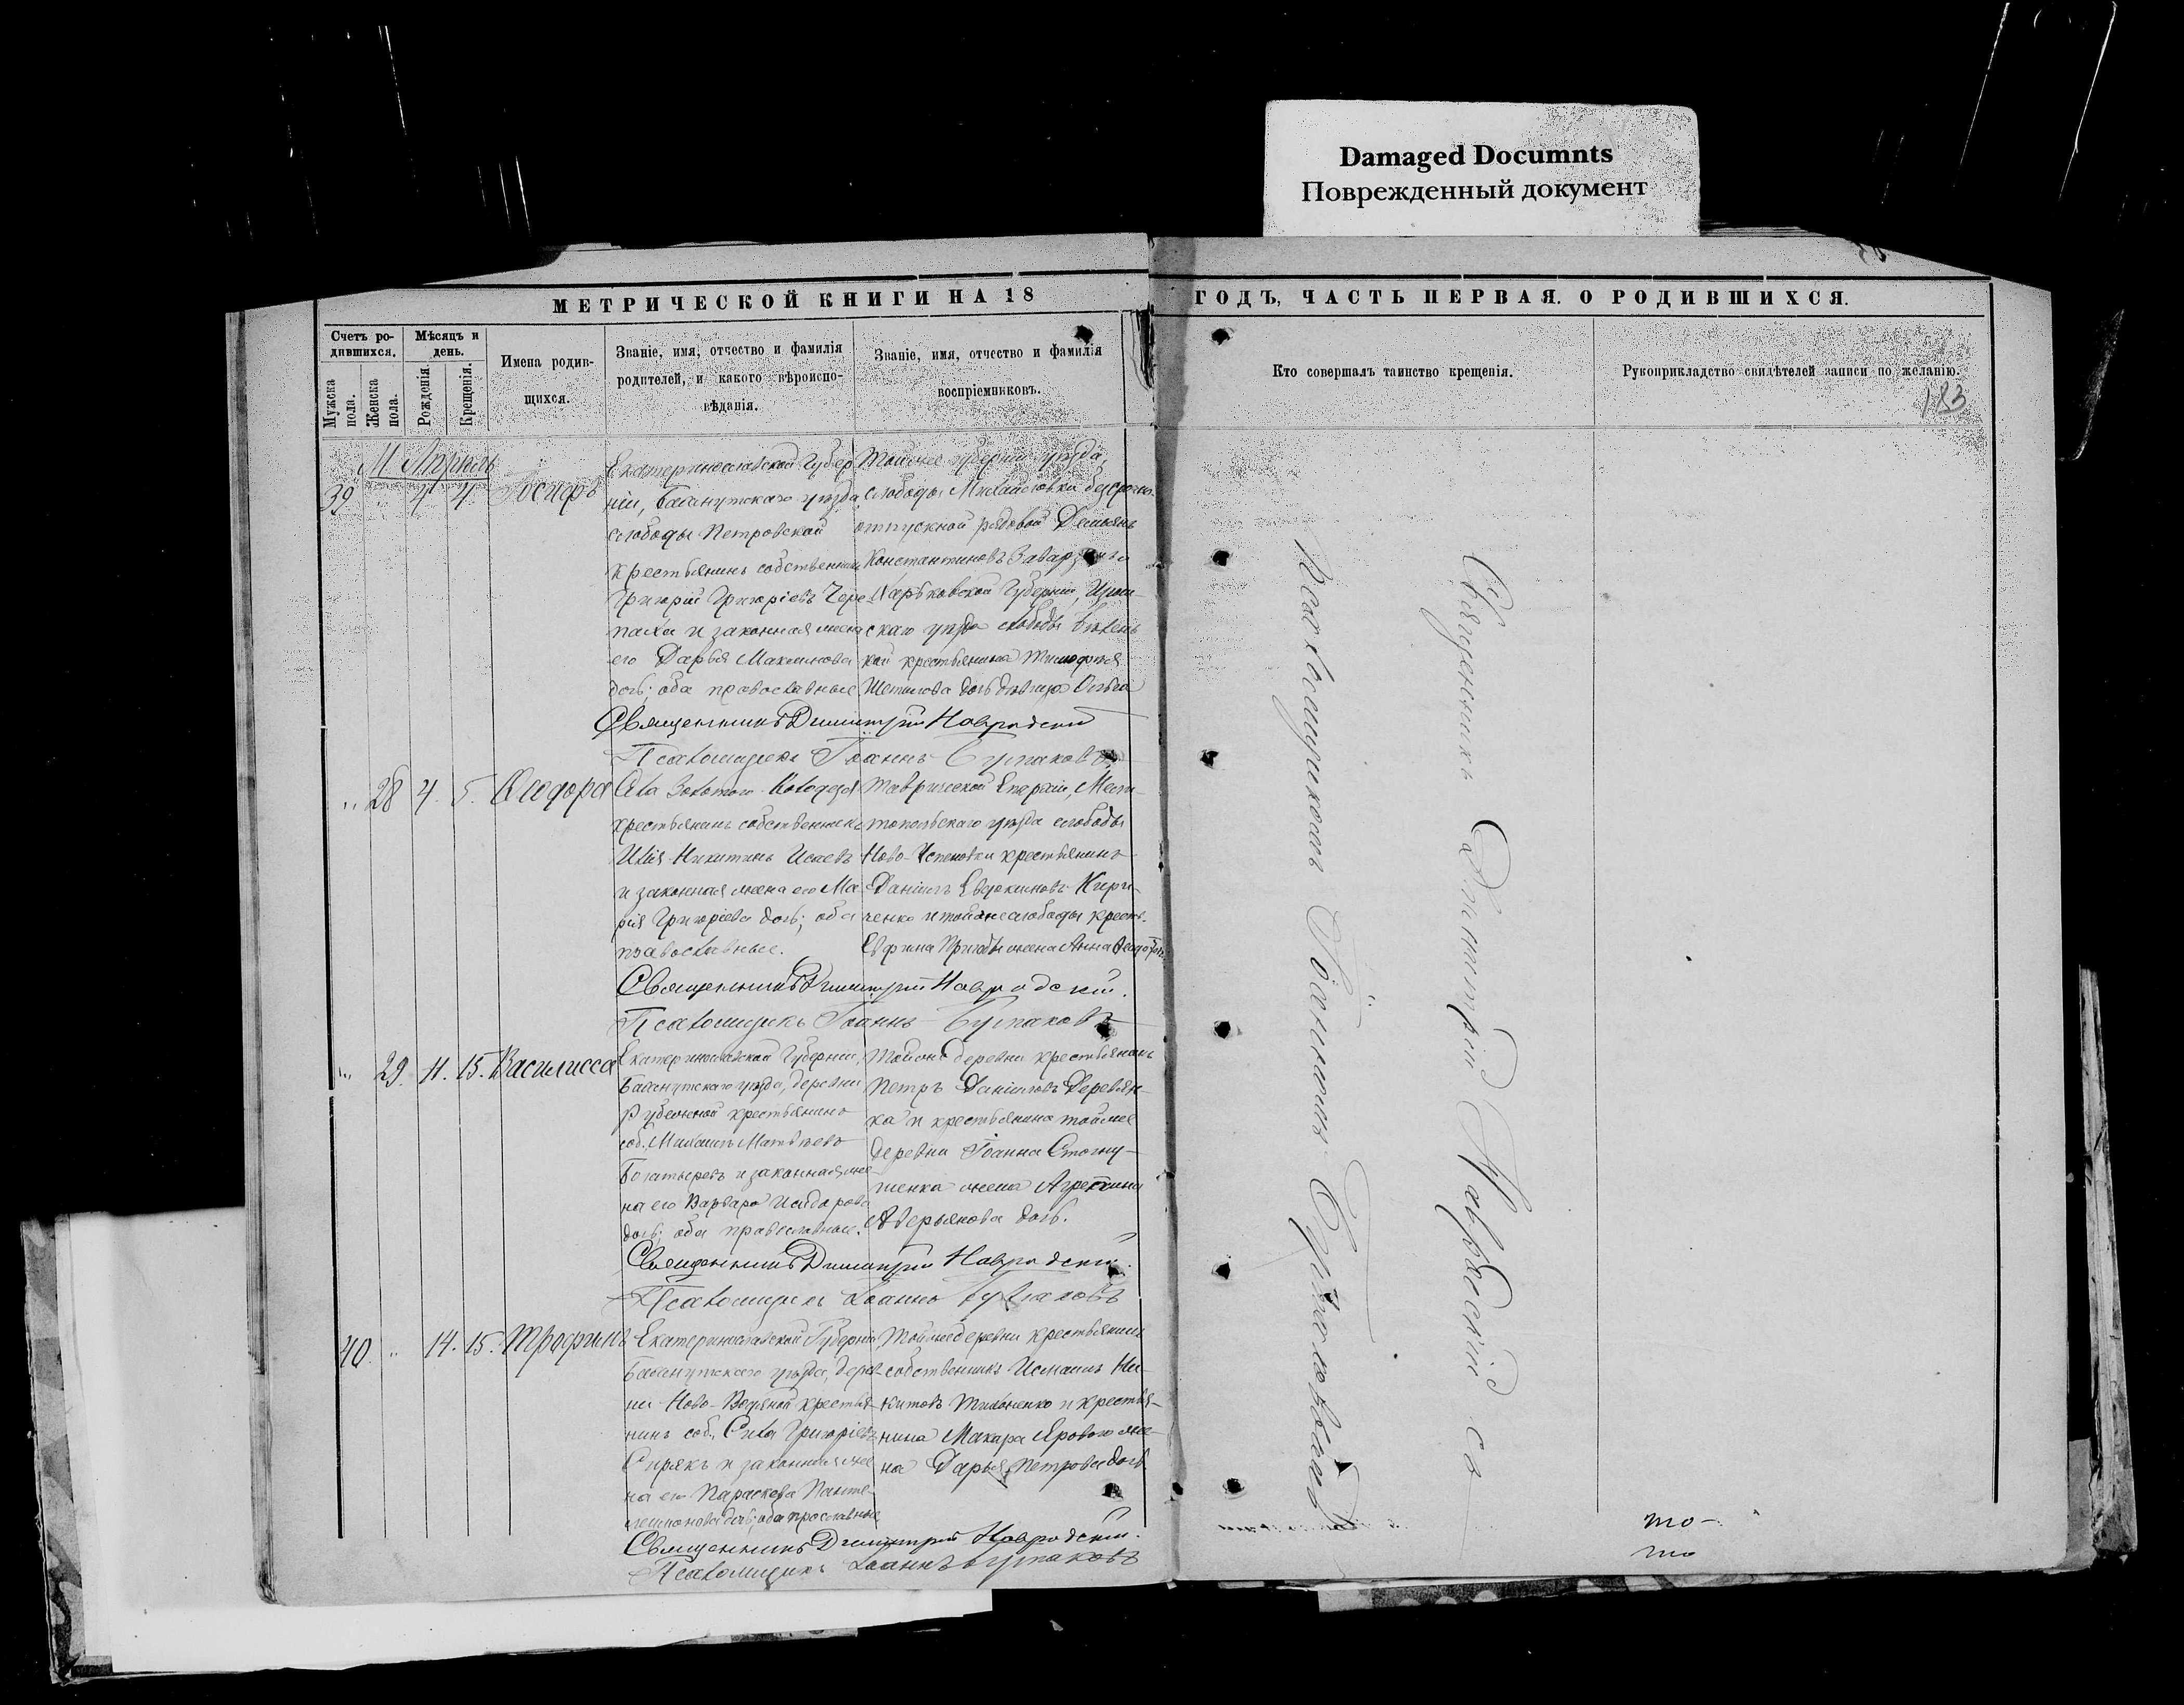 Damaged Documnts
Поврежденный документ
МЕТРИЧЕСКОЙ КНИГИ НА 18
ГОДЪ, ЧАСТЬ ПЕРВАЯ. О РОДИВШИХСЯ.
Счетъ ро-
дившихся.
Мужска пола.
Женска пола.
Мѣсяцъ и
день.
Рожденія.
Крещенія.
Имена родив-
шихся.
Званіе, имя, отчество и фамилія
родителей, и какого вѣроиспо-
вѣданія.
Званіе, имя, отчество и фамилія
воспріемниковъ.
Кто совершалъ таинство крещенія.
Рукоприкладство свидѣтелей записи по желанію.
183
М Априль
39 4 4 Іосифъ
Екатеринославской Губер
ніи, Бахмутскаго уѣзда
слободы Петровской
крестьянинъ собственникъ
Григорій Григоріевъ Чере
паха и законная жена
его Дарья Максимова
дочь; оба православные
Тойже губерніи уѣзда
слободы Михайловки безсрочно
отпускной рядовой Демьянъ
Константиновъ
Харьковской Губерніи, Изюм
скаго уѣзда слободы
кой крестьянина Тимофея
дочь дѣвица Ольга
Священникъ Димитрій Навродскій
Псаломщикъ Іоаннъ Бурлаковъ
" 28 4. 5. Ѳеодора
Села Золотого Колодезя
крестьянинъ собственникъ
Илія Никитинъ Исаевъ
и законная жена его Ма
рія Григоріева дочь; оба
православные.
Таврической Епархіи, Мели
топольскаго уѣзда слободы
Ново-Успеновки крестьянинъ
Даніилъ Евдокимовъ Кири-
ченко и тойже слободы крест.
жена Анна
Священникъ Димитрій Навродскій.
Псаломщикъ Іоаннъ Бурлаковъ
" 29. 11. 15. Василисса
Екатеринославской Губерніи,
Бахмутскаго уѣзда, деревни
Рубежной крестьянинъ
соб. Михаилъ Матвѣевъ
Богатыревъ и законная же
на его Варвара Исидорова
дочь; оба православные.
Тойже деревни крестьянинъ
Петръ Даніиловъ Деревян-
ка и крестьянина тойже
деревни Іоанна
жена Агрепина
Аверьянова дочь.
Священникъ Димитрій Навродскій.
Псаломщикъ Іоаннъ Бурлаковъ
40. " 14. 15. Трофимъ
Екатеринославской Губерніи
Бахмутскаго уѣзда, дерев
ни Ново-Водяной крестья-
нинъ соб. Сила Григоріевъ
Сирякъ и законная же
на его Параскева Панте-
леимонова дочь; оба православные
Тойже деревни крестьянинъ
собственникъ Исмаилъ Ни-
китовъ Тихоненко и крестья-
нина Макара Ярового же-
на Дарья Петрова дочь.
Священникъ Димитрій Навродскій.
Псаломщикъ Іоаннъ Бурлаковъ
Священникъ Димитрій Навродскій съ
Псаломщикомъ Іоанномъ Бурлаковымъ
то-
то